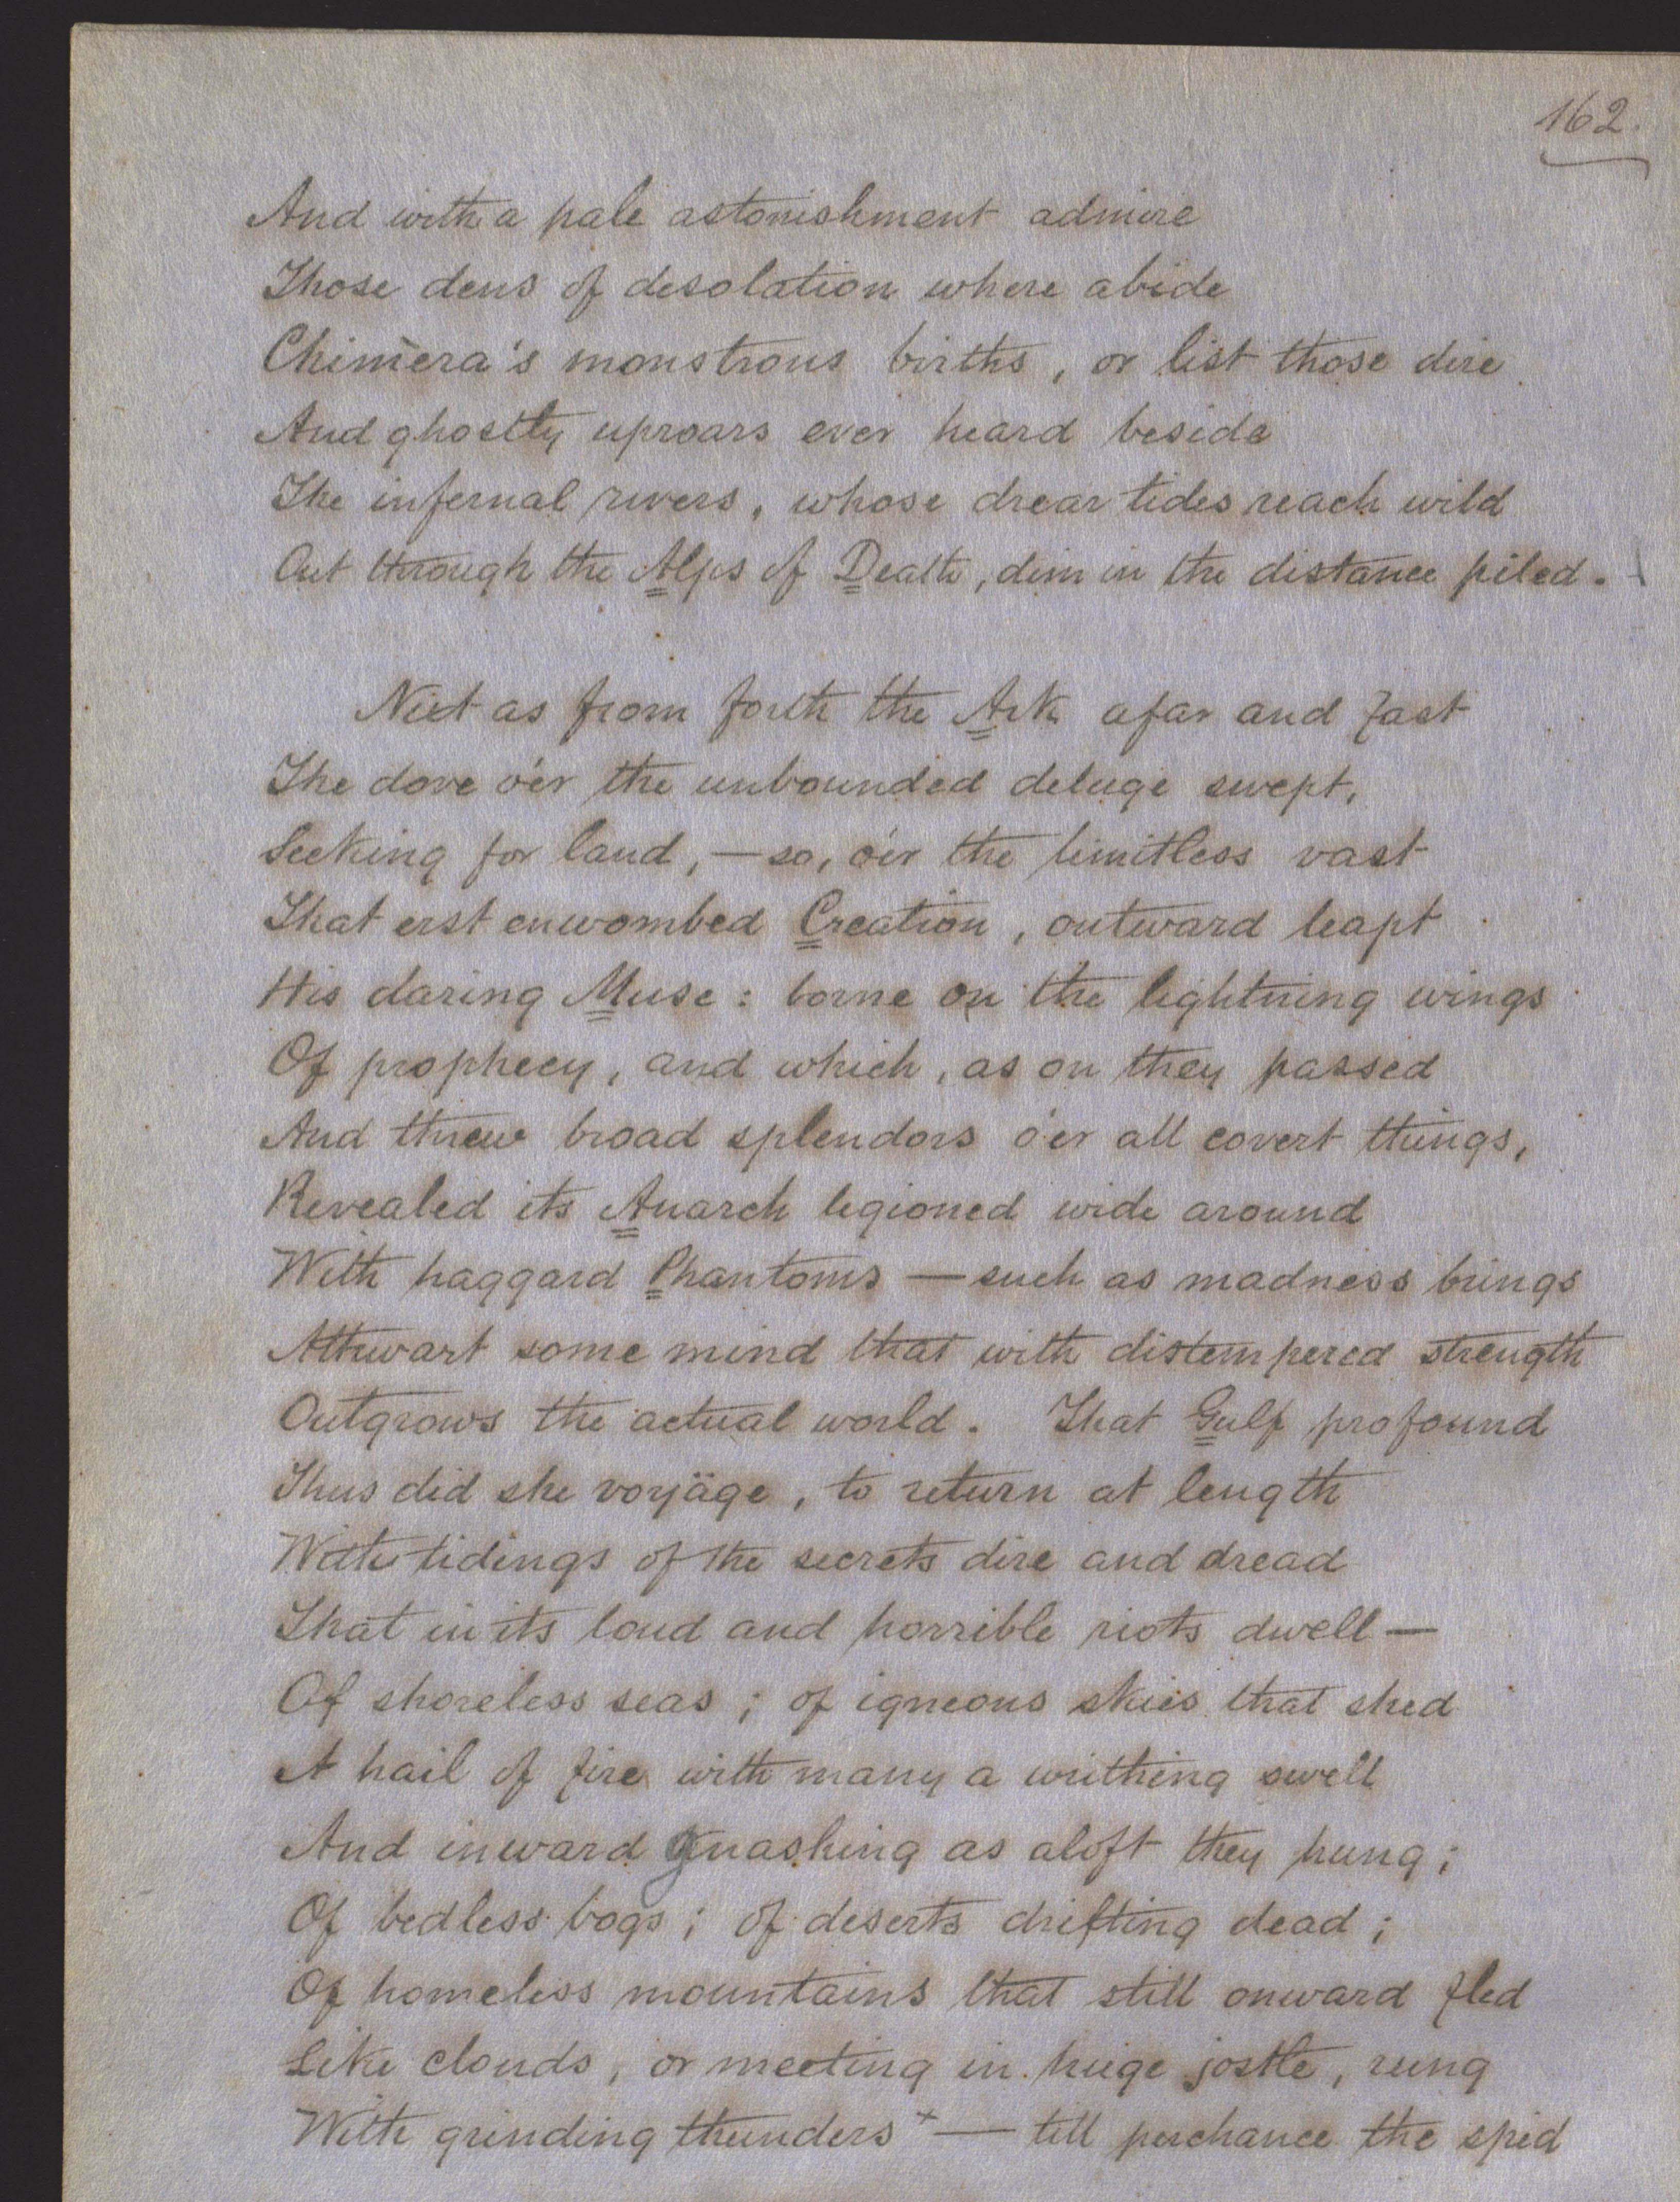 162.
And with a pale astonishment admire
Those dens of desolation where abide
Chimera's monstrous births, or list those dire
And ghostly uproars ever heard beside
The infernal rivers, whose drear tides reach wild
Out through the Alps of Death, dim in the distance piled.
Next as from forth the Ark afar and fast
The dove o'er the unbounded deluge swept,
Seeking for land, — so, o'er the limitless vast
That erst enwombed Creation, outward leapt
His daring Muse: borne on the lightning wings
Of prophecy, and which, as on they passed
And threw broad splendors o'er all covert things,
Revealed its Anarch legioned wide around
With haggard Phantoms — such as madness brings
Athwart some mind that with distempered strength
Outgrows the actual world. That Gulf profound
Thus did she voyäge, to return at length
With tidings of the secrets dire and dread
That in its loud and horrible riots dwell —
Of shoreless seas; of igneous skies that shed
A hail of fire with many a writhing swell
And inward gnashing as aloft they hung;
Of bedless bogs; of deserts drifting dead;
Of homeless mountains that still onward fled
Like clouds, or meeting in huge jostle, rung
With grinding thunders + — till perchance the sped